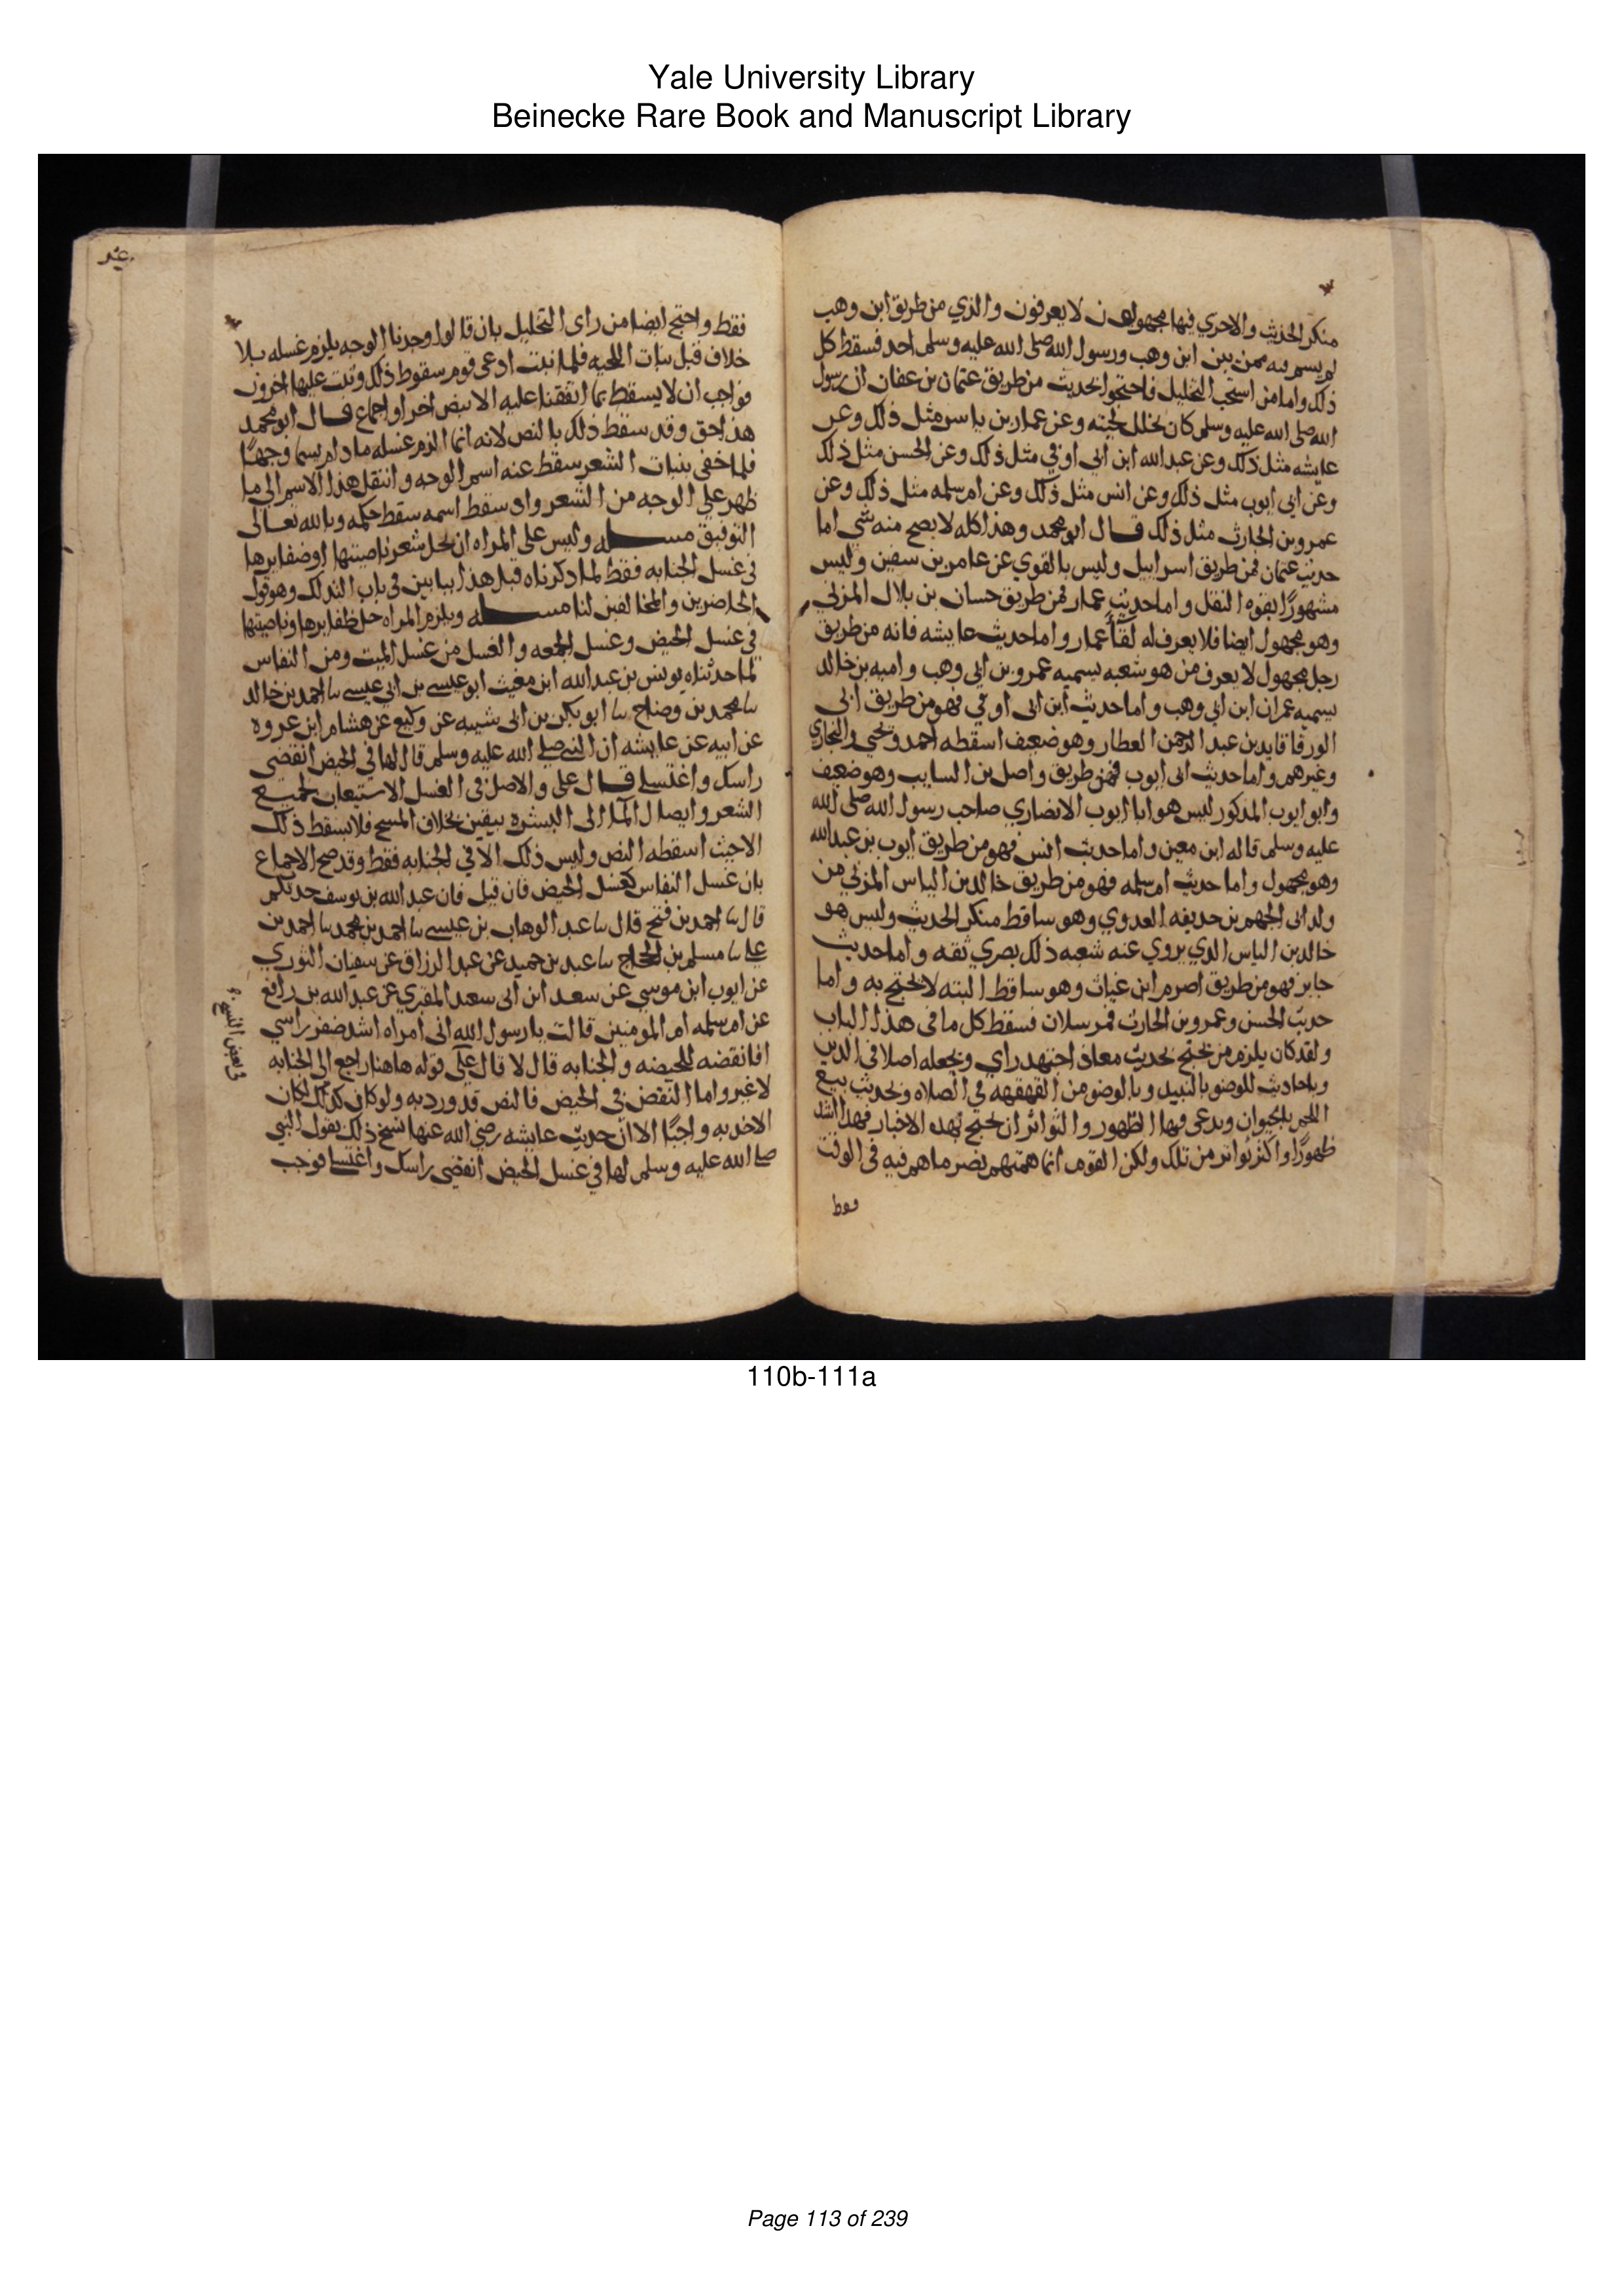 Yale University Library
Beinecke Rare Book and Manuscript Library
منكر الحديث والاخري فيها مجهولون لا يعرفون والذي من طريق ابن وهب
لم يسم فيه من بين ابن وهب ورسول الله صلى الله عليه وسلم احد فسقط كل
ذلك واما من استحب التخليل فاحتجوا بحديث من طريق عثمان بن عفان ان رسول
الله صلى الله عليه وسلم كان يخلل لحيته وعن عمار بن ياسر مثل ذلك وعن
عايشه مثل ذلك وعن عبد الله ابن ابي اوفي مثل ذلك وعن الحسن مثل ذلك
وعن ابي ايوب مثل ذلك وعن انس مثل ذلك وعن ام سلمه مثل ذلك وعن
عمرو بن الحارث مثل ذلك قال ابو محمد وهذا كله لا يصح منه شي اما
حديث عثمان فمن طريق اسرايل وليس بالقوي عن عامر بن سفين وليس
مشهورًا بقوه النقل واما حديث عمار فمن طريق حسان بن بلال المزني
وهو مجهول ايضا فلا يعرف له لقاً عمار واما حديث عايشه فانه من طريق
رجل مجهول لا يعرف من هو شعبه يسميه عمرو بن ابي وهب واميه بن خالد
يسميه عمران ابن ابي وهب واما حديث ابن ابي اوفي فهو من طريق ابي
الورقا فايد بن عبد الرحمن العطار وهو ضعيف اسقطه احمد ويحيي والبخاري
وغيرهم واما حديث ابى ايوب فمن طريق واصل بن السايب وهو ضعيف
وابو ايوب المذكور ليس هو ابا ايوب الانصاري صاحب رسول الله صلى الله
عليه وسلم قاله ابن معين واما حديث انس فهو من طريق ايوب بن عبد الله
وهو مجهول واما حديث ام سلمه فهو من طريق خالد بن الياس المزني من
ولد ابى الجهم بن حذيفه العدوي وهو ساقط منكر الحديث وليس هو
خالد بن الياس الذي يروي عنه شعبه ذلك بصري ثقه واما حديث
جابر فهو من طريق اصرم ابن غياث وهو ساقط البته لا يحتج به واما
حديث الحسن وعمرو بن الحارث فمرسلان فسقط كل ما في هذا الباب
ولقد كان يلزم من يحتج بحديث معاذ اجتهد راي ويجعله اصلا في الدين
وباحاديث الوضو بالنبيد وبالوضو من القهقهه في الصلاه وبحديث بيع
اللحم بالحيوان ويدعى فيها الظهور والتواتر ان يحتج بهده الاخبار فهذا اشد
ظهورًا واكثر تواتر من تلك ولكن القوم انما همتهم نصر ما هم فيه في الوقت
فقط
فقط واحتج ايضا من راى التخليل بان قالوا وجدنا الوجه يلزم غسله بلا
خلاف قبل نبات اللحيه فلما نبت ادعى قوم سقوط ذلك وثبت عليها اخرون
فواجب ان لا يسقط ما اتفقنا عليه الا بنص اخر او اجماع قال ابو محمد
هذا حق وقد سقط ذلك بالنص لانه انما الزم غسله ما دام يسما وجهًا
فلما خفي بنبات الشعر سقط عنه اسم الوجه وانتقل هذا الاسم الى ما
ظهر علي الوجه من الشعر واد سقط اسمه سقط حكمه وبالله تعالى
التوفيق مسله وليس على المراه ان تحل شعر ناصيتها او ضفايرها
في غسل الجنابه فقط لما ذكرناه قبل هذا ببابين في باب التدلك وهو قول
الحاضرين والمخالفين لنا مسله ويلزم المراه حل ظفايرها وناصيتها
في غسل الحيض وغسل الجمعه والغسل من غسل الميت ومن النفاس
لما حدثناه يونس بن عبد الله ابن مغيث ابو عيسى بن ابي عيسى نا احمد بن خالد
نا محمد بن وضاح نا ابو بكر بن ابى شيبه عن وكيع عن هشام ابن عروه
عن ابيه عن عايشه ان النبي صلى الله عليه وسلم قال لها في الحيض انقضى
راسك واغتسلي قال علي والاصل في الغسل الاستيعاب لجميع
الشعر وايصال الماء الى البشره بيقين بخلاف المسح فلا يسقط ذلك
الا حيث اسقطه النص وليس ذلك الا في الجنابه فقط وقد صح الاجماع
بان غسل النفاس كغسل الحيض فان قيل فان عبد الله بن يوسف حدثكم
قال نا احمد بن فتح قال نا عبد الوهاب بن عيسى نا احمد بن محمد نا احمد بن
علي نا مسلم بن الحجاج نا عبد بن حميد عن عبد الرزاق عن سفيان الثوري
عن ايوب ابن موسي عن سعد ابن ابى سعد المقبري عن عبد الله بن رافع
عن ام سلمه ام المومنين قالت يا رسول الله انى امراه اشد ضفر راسي
افانقضه للحيضه والجنابه قال لا قال علي قوله هاهنا راجع الى الجنابه
لا غير واما النقض في الحيض فالنص قد ورد به ولو كان كذلك لكان
الاخذ به واجبًا الا ان حديث عايشه رضي الله عنها نسخ ذلك بقول النبي
صلى الله عليه وسلم لها في غسل الحيض انقضي راسك واغتسلي فوجب
110b-111a
Page 113 of 239